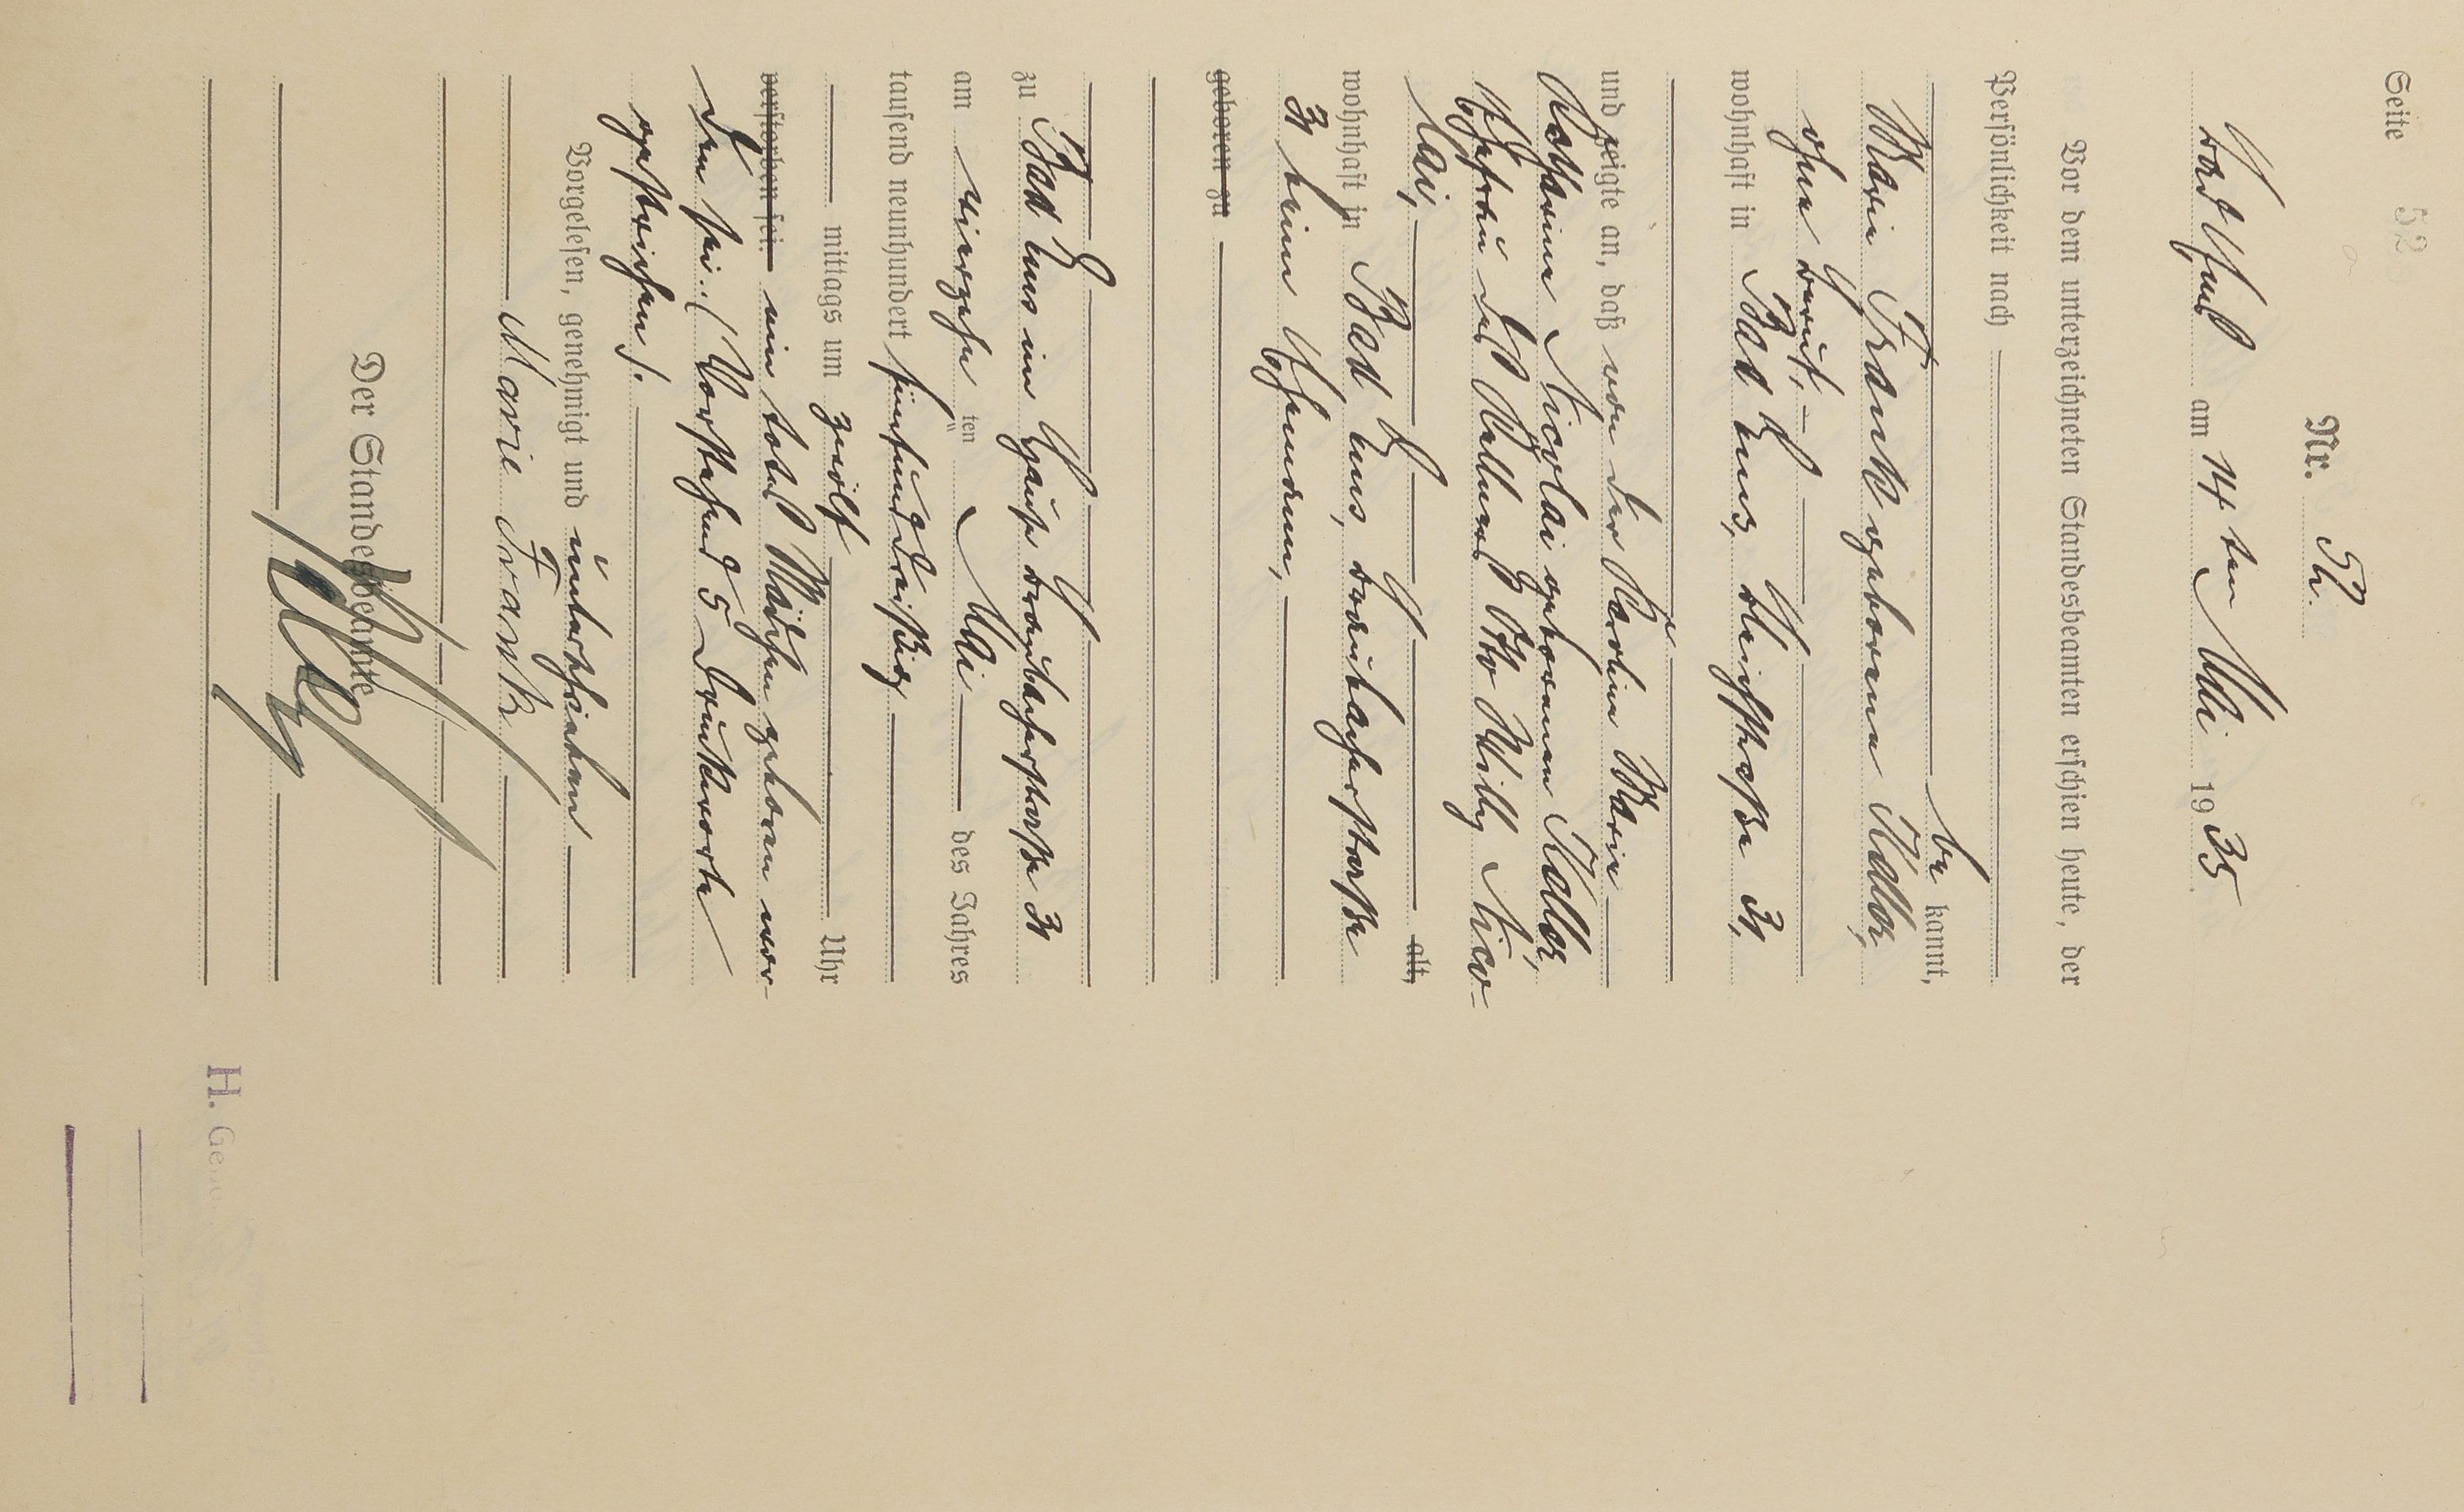 Seite 52
Nr. 52.
Bad Ems am 14ten Mai 1935
Vor dem unterzeichneten Standesbeamten erschien heute, der
Persönlichkeit nach
be kannt,
Marie Frank geborene
ohne Beruf,
wohnhaft in Bad Ems, Bleichstraße 31,
und zeigte an, daß von der Karolin Marie
Katharine Nicolai geborenen
Ehefrau des Kellners Otto Willy Nico-
lai, alt,
wohnhaft in Bad Ems, Braubacherstraße
31 beim Ehemann,
geboren zu
zu Bad Ems im Hause Braubacherstraße 31
am vierzehn ten Mai des Jahres
tausend neunhundert fünfunddreißig
mittags um zwölf Uhr
verstorben sei. ein totes Mädchen geboren wor-
den sei. (Vorstehend 5 Druckworte
gestrichen).
Vorgelesen, genehmigt und unterschrieben
Marie Frank
Der Standesbeamte
H.